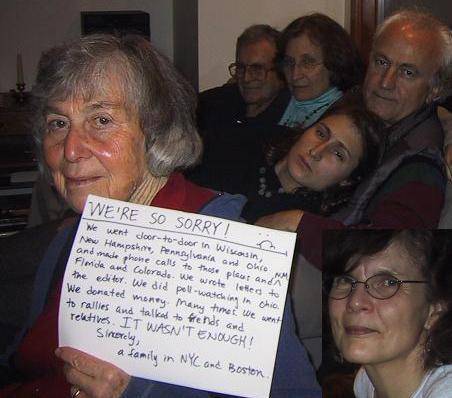 WE'RE SO SORRY!
We went door-to-door in Wisconsin,
New Hampshire, Pennsylvania and Ohio, NM
and made phone calls to those places and ^
Florida and Colorado. We wrote letters to
the editor. We did poll-watching in Ohio.
We donated money. Many times we went
to rallies and talked to friends and
relatives. IT WASN'T ENOUGH!
Sincerely,
a family in NYC and Boston.